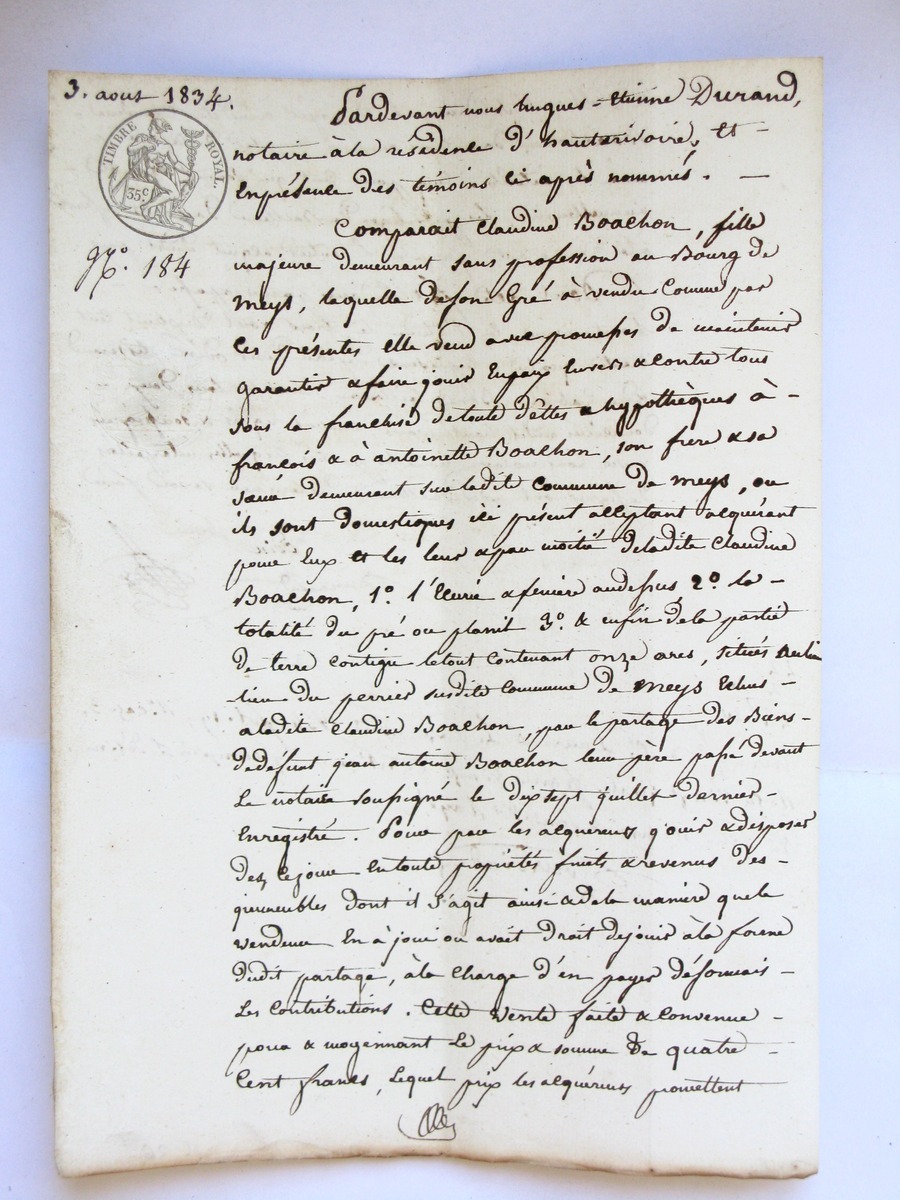 3. aout 1834.
TIMBRE ROYAL.
35c
N.o 184
Pardevant nous hugues-Etienne Durand,
notaire à la résidence d'hauterivoire, Et -
En présence des témoins ci après nommés. -
Comparait Claudine Boachon, fille
majeure demeurant sans profession au Bourg de
Meys, laquelle de son Gré à vendu Comme par
Ces présentes Elle vend avec promesses de maintenir
garantir & faire jouir En paix Envers & contre tous
sous la franchise de toute dêttes & hypothèques à -
françois & à antoinette Boachon, son frere & sa
sœur demeurant sur ladite Commune de meys, ou
ils sont domestiques ici présent acceptant acquérant
pour Eux et les leur & par moitié de ladite Claudine
Boachon, 1.o l'Ecurie & feniere audessus 2.o la -
totalité du pré ou planit 3.o & enfin de la partie
de terre contigue le tout contenant onze ares, situés
lieu du perrier susdite Commune de Meys Echus -
a ladite Claudine Boachon, par le partage des Biens -
de défunt jean antoine Boachon leur père passé devant
Le notaire soussigné le dix sept juillet dernier -
Enregistré. Pour par les acquéreurs jouir & disposer
dez ce jour En toute propriétés fruits & revenus des -
immeubles dont il s'agit ainsi & de la maniere que la
vendeuse En à joui ou avait droit de jouir à la forme
dudit partage, à la Charge d'en payer désormais -
Les Contributions. Cette Vente faite & Convenue -
pour & moyennant Le prix & somme De quatre -
Cent francs, Lequel prix les acquéreurs promettent